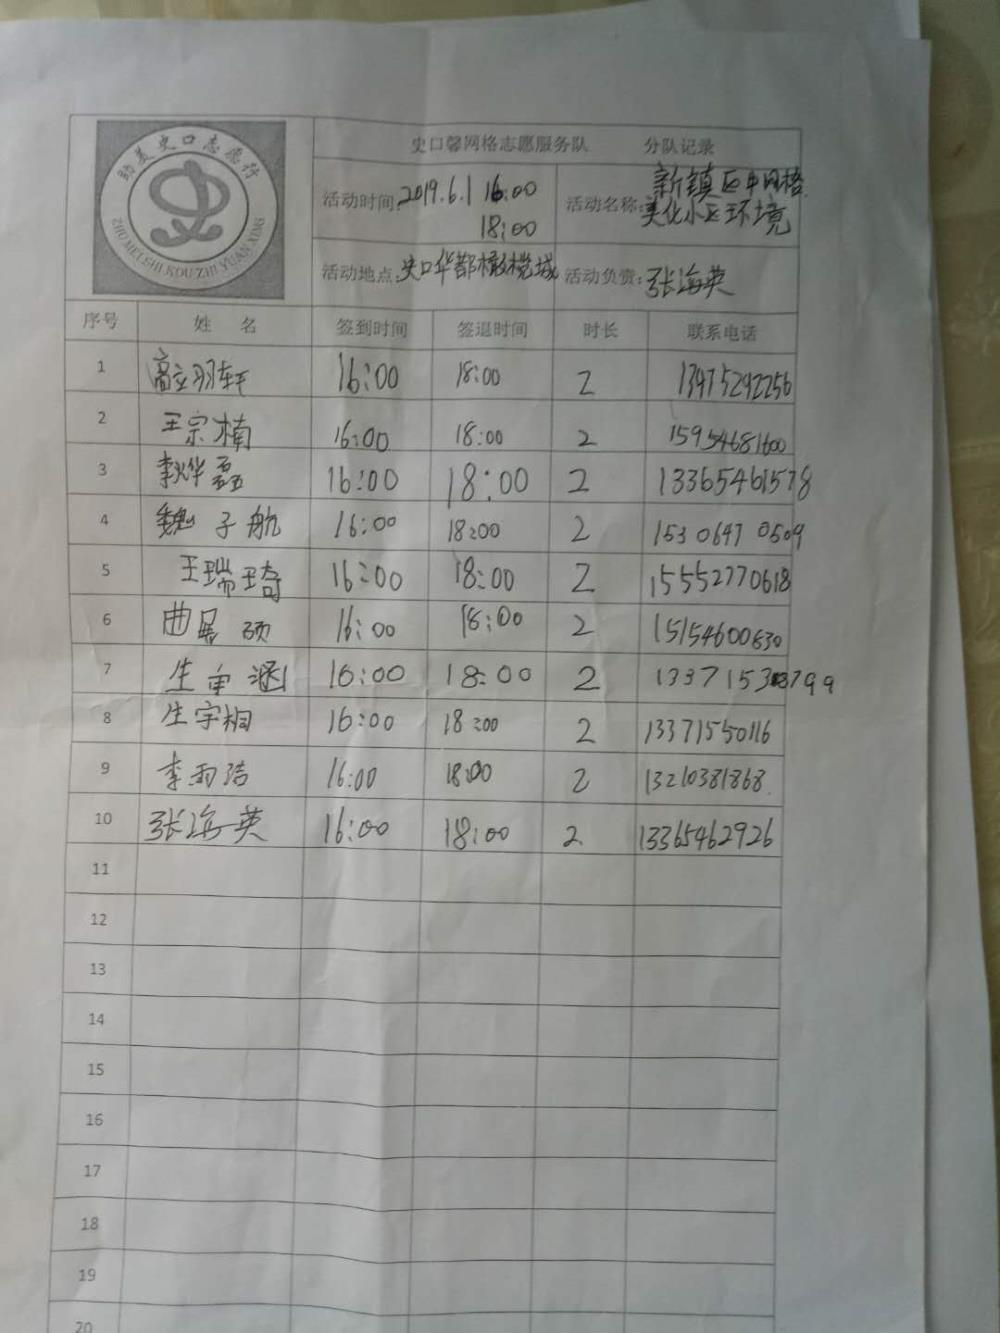 助美史口志愿行
ZHU MEI SHI KOU ZHI YUAN XING
史口馨网格志愿服务队 分队记录
活动时间: 2019.6.1 16:00
18:00
活动名称: 新镇区中网格
美化小区环境
活动地点: 史口华都橄榄城 活动负责: 张海英
序号 姓 名 签到时间 签退时间 时长 联系电话
1 高立羽轩 16:00 18:00 2 13475292256
2 王宗楠 16:00 18:00 2 15954681600
3 李烨磊 16:00 18:00 2 13365461578
4 魏子航 16:00 18:00 2 15306470509
5 王瑞琦 16:00 18:00 2 15552770618
6 曲展硕 16:00 18:00 2 15154600630
7 生 涵 16:00 18:00 2
8 生宇桐 16:00 18:00 2 13371550116
9 李雨洁 16:00 18:00 2 13210381868
10 张海英 16:00 18:00 2 13365462926
11
12
13
14
15
16
17
18
19
20